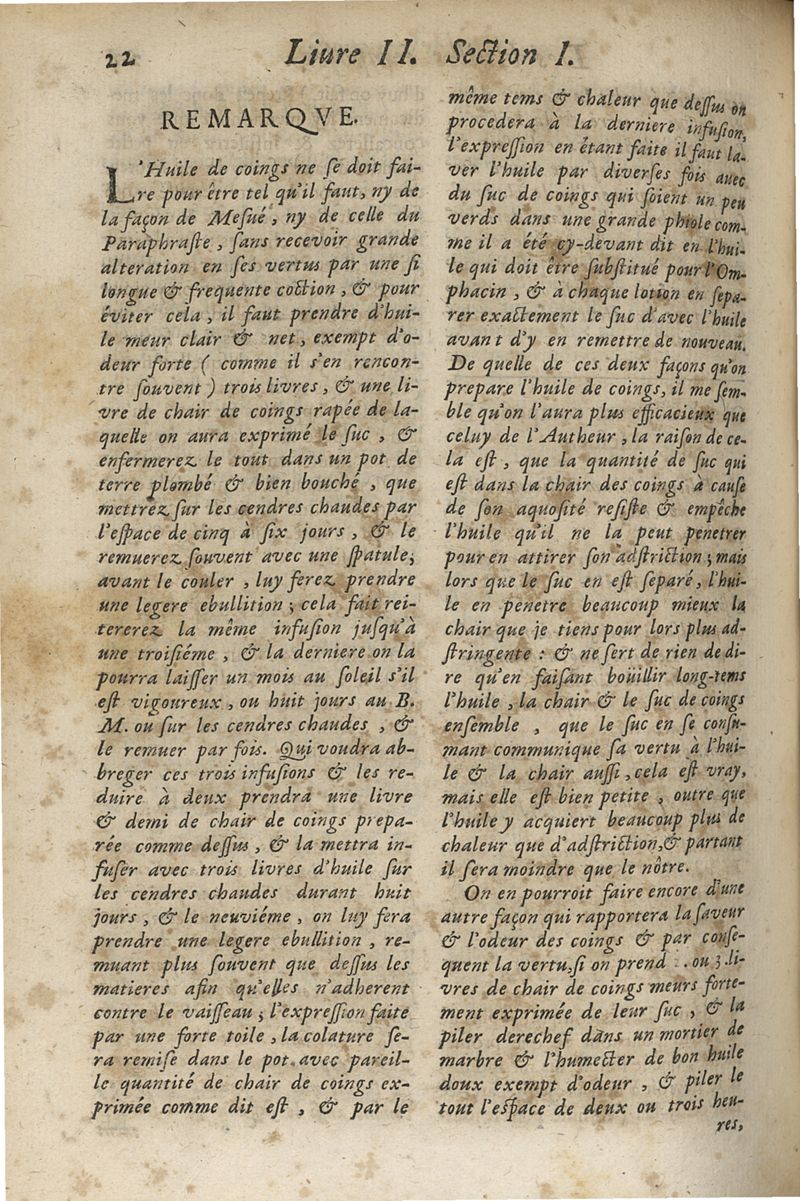 22 Liure II. Section I.
REMARQVE.
L'Huile de coings ne se doit fai-
re pour être tel qu'il faut, ny de
la façon de Mesué, ny de celle du
Paraphraste, sans recevoir grande
alteration en ses vertus par une si
longue & frequente coction, & pour
éviter cela, il faut prendre d'hui-
le meur clair & net, exempt d'o-
deur forte ( comme il s'en rencon-
tre souvent ) trois livres, & une li-
vre de chair de coings rapée de la-
quelle on aura exprimé le suc, &
enfermerez le tout dans un pot de
terre plombé & bien bouché, que
mettrez sur les cendres chaudes par
l'espace de cinq à six jours, & le
remuerez souvent avec une spatule;
avant le couler, luy ferez prendre
une legere ebullition; cela fait rei-
tererez la même infusion jusqu'à
une troisiéme, & la derniere on la
pourra laisser un mois au soleil s'il
est vigoureux, ou huit jours au B.
M. ou sur les cendres chaudes, &
le remuer par fois. Qui voudra ab-
breger ces trois infusions & les re-
duire à deux prendra une livre
& demi de chair de coings prepa-
rée comme dessus, & la mettra in-
fuser avec trois livres d'huile sur
les cendres chaudes durant huit
jours, & le neuviéme, on luy fera
prendre une legere ebullition, re-
muant plus souvent que dessus les
matieres afin qu'elles n'adherent
contre le vaisseau; l'expression faite
par une forte toile, la colature se-
ra remise dans le pot avec pareil-
le quantité de chair de coings ex-
primée comme dit est, & par le
même tems & chaleur que dessus on
procedera à la derniere infusion,
l'expression en étant faite il faut la-
ver l'huile par diverses fois avec
du suc de coings qui soient un peu
verds dans une grande phiole com-
me il a été cy-devant dit en l'hui-
le qui doit être substitué pour l'Om-
phacin, & à chaque lotion en sepa-
rer exactement le suc d'avec l'huile
avant d'y en remettre de nouveau.
De quelle de ces deux façons qu'on
prepare l'huile de coings, il me sem-
ble qu'on l'aura plus efficacieux que
celuy de l'Autheur, la raison de ce-
la est, que la quantité de suc qui
est dans la chair des coings à cause
de son aquosité resiste & empêche
l'huile qu'il ne la peut penetrer
pour en attirer son adstriction; mais
lors que le suc en est separé, l'hui-
le en penetre beaucoup mieux la
chair que je tiens pour lors plus ad-
stringente : & ne sert de rien de di-
re qu'en faisant boüillir long-tems
l'huile, la chair & le suc de coings
ensemble, que le suc en se consu-
mant communique sa vertu à l'hui-
le & la chair aussi, cela est vray,
mais elle est bien petite, outre que
l'huile y acquiert beaucoup plus de
chaleur que d'adstriction, & partant
il sera moindre que le nôtre.
On en pourroit faire encore d'une
autre façon qui rapportera la saveur
& l'odeur des coings & par conse-
quent la vertu, si on prend ou 3. li-
vres de chair de coings meurs forte-
ment exprimée de leur suc, & la
piler derechef dans un mortier de
marbre & l'humecter de bon huile
doux exempt d'odeur, & piler le
tout l'espace de deux ou trois heu-
res,